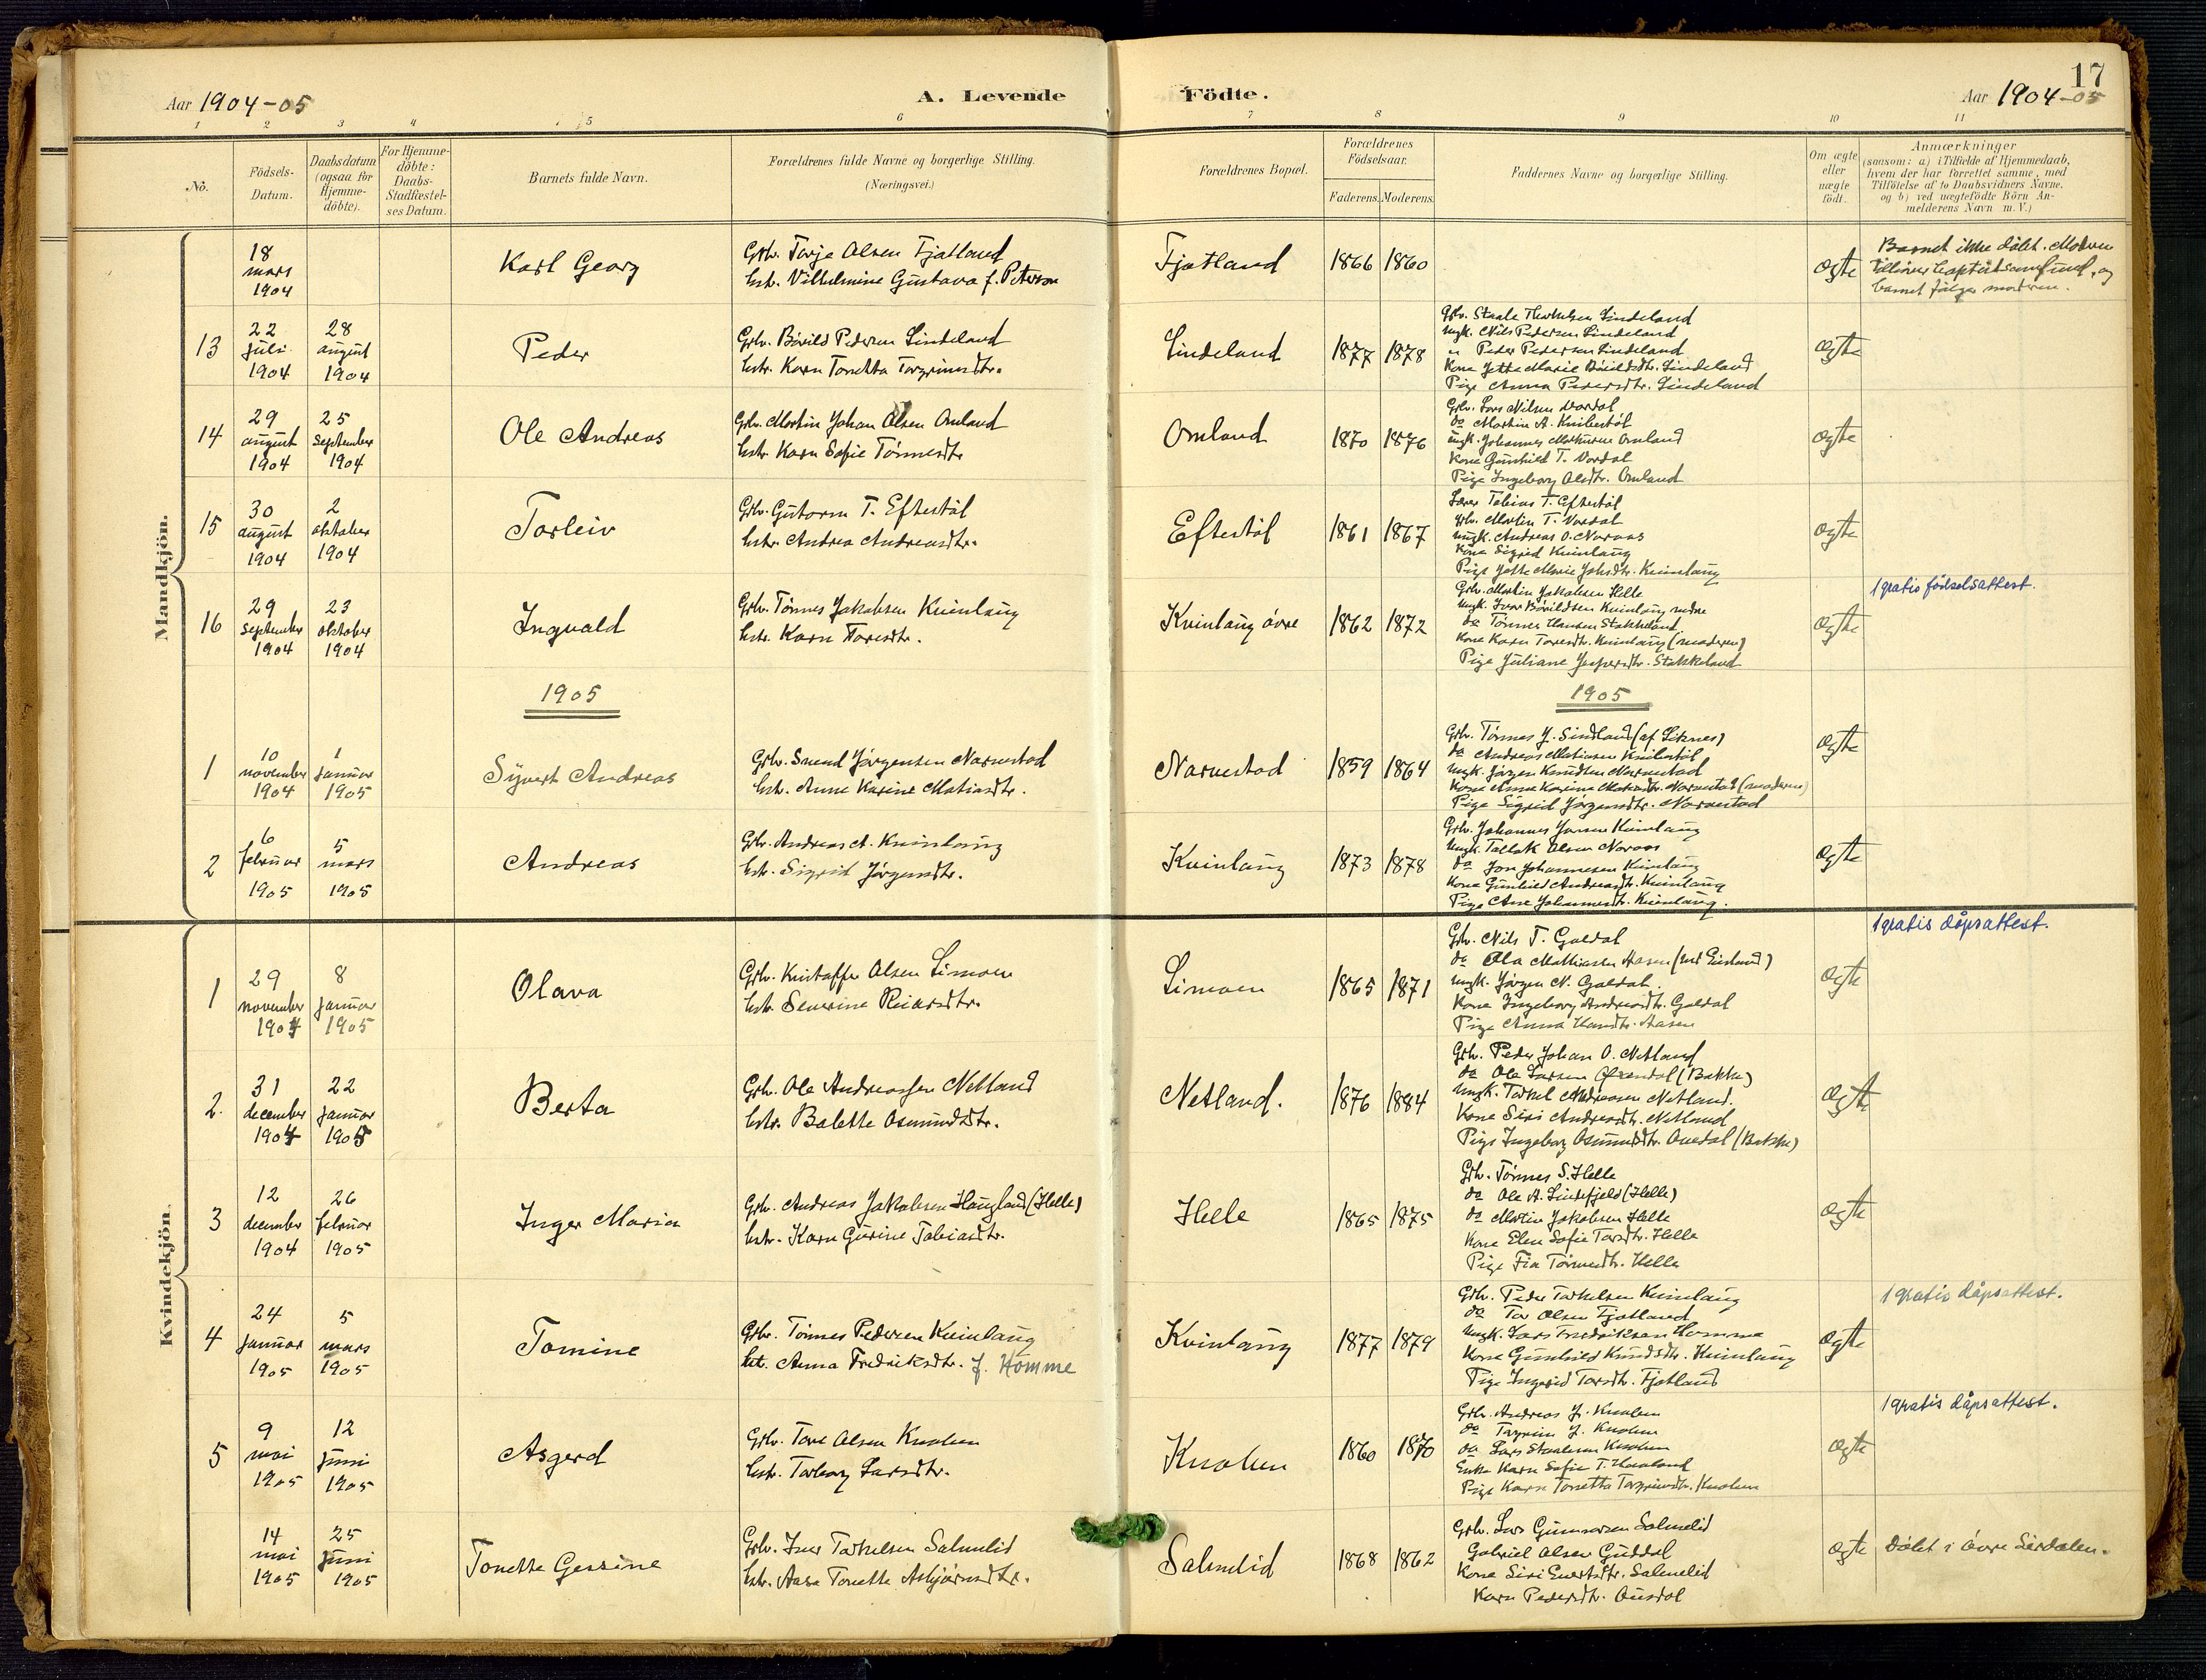 17
Aar 1904-05
A. Levende
Födte.
Aar 1904-05
1 2 3 4 5 6 7 8 9 10 11
No.
Födsels-
Datum.
Daabsdatum
(ogsaa for
Hjemme-
döbte).
For Hjemme-
döbte:
Daabs-
Stadfæstel-
ses Datum.
Barnets fulde Navn.
Forældrenes fulde Navne og borgerlige Stilling.
(Næringsvei.)
Forældrenes Bopæl.
Forældrenes
Födselsaar.
Faderens. Moderens.
Faddernes Navne og borgerlige Stilling.
Om ægte
eller
uægte
födt.
Anmærkninger
(saasom: a) i Tilfælde af Hjemmedaab,
hvem der har forrettet samme, med
Tilföielse af to Daabsvidners Navne.
og b) ved uægtefödte Börn An-
melderens Navn m. V.)
Mandkjön.
18
mars
1904
Karl Georg
Grbr. Torje Olsen Fjotland
hstr. Vilhelmine Gustava f. Peterson
Fjotland
1866 1860
ægte
Barnet ikke døbt. Moderen
tilhører baptistsamfund, og
barnet følger moderen.
13
22
juli
1904
28
august
1904
Peder
Grbr. Bårild Pedersen Lindeland
hstr. Karn Tonetta Torgrimsdtr.
Lindeland
1877 1878
Grbr. Staale Therkelsen Lindeland
ungk. Nils Pedersen Lindeland
" Peder Pedersen Lindeland
Kone Jette Marie Bårildsdtr. Lindeland
Pige Anna Pedersdtr. Lindeland
ægte
14
29
august
1904
25
september
1904
Ole Andreas
Grbr. Martin Johan Olsen Omland
hstr. Karn Sofie Tønnesdtr.
Omland
1870 1876
Grbr. Lars Nilsen Vordal
do Martin A. Knibestøl
ungk. Johannes Omland
Kone Gunhild T. Vordal
Pige Ingeborg Olsdtr. Omland
ægte
15
30
august
1904
2
oktober
1904
Torleiv
Grbr. Gutorm T. Eftestøl
hstr. Andrea Andreasdtr.
Eftestøl
1861 1867
Lærer Tobias T. Eftestøl
Grbr. Martin T. Vordal
ungk. Andreas O. Noraas
Kone Sigrid Kvinlaug
Pige Jette Marie Johsdtr. Kvinlaug
ægte
16
29
september
1904
23
oktober
1904
Ingvald
Grbr. Tønnes Jakobsen Kvinlaug
hstr. Karn Toresdtr.
Kvinlaug øvre
1862 1872
Grbr. Martin Jakobsen Helle
ungk. Iver Bårildsen Kvinlaug nedre
do Tønnes Hansen Stakkeland
Kone Karn Toresdtr. Kvinlaug (moderen)
Pige Juliane Jespersdtr. Stakkeland
ægte
1 gratis fødselsattest.
1905
1905
1
10
november
1904
1
januar
1905
Syvert Andreas
Grbr. Svend Jørgensen Narvestad
hstr. Anne Karine Matiasdtr.
Narvestad
1859 1864
Grbr. Tønnes J. Sindland (af Liknes)
do Andreas Matiasen Knibestøl
ungk. Jørgen Knudsen Narvestad
Kone Anne Karine Matiasdtr. Narvestad (moderen)
Pige Sigrid Jørgensdtr. Narvestad
ægte
2
6
februar
1905
5
mars
1905
Andreas
Grbr. Andreas A. Kvinlaug
hstr. Sigrid Jørgensdtr.
Kvinlaug
1873 1878
Grbr. Johannes Jonsen Kvinlaug
Ungk. Tallak Olsen Noraas
do Jon Johannesen Kvinlaug
Kone Gunhild Andreasdtr. Kvinlaug
Pige Ane Johannesdtr. Kvinlaug.
ægte
Kvindekjön.
1
29
november
1904
8
januar
1905
Olava
Grbr. Kristoffer Olsen Limoen
hstr. Severine Reiarsdtr.
Limoen
1865 1871
Grbr. Nils T. Galdal
do Ola Mathiasen Aasen
ungk. Jørgen N. Galdal
Kone Ingeborg Andreasdtr. Galdal
Pige Anna Aasen
ægte
1 gratis dåpsattest.
2.
31
december
1904
22
januar
1905
Berta
Grbr. Ole Andreassen Netland
hstr. Balette Osmundsdtr.
Netland.
1876 1884
Grbr. Peder Johan O. Netland
do Ole Larsen (Bakke)
ungk. Torkel Andreasen Netland.
Kone Siri Andreasdtr. Netland
Pige Ingeborg Osmundsdtr. (Bakke)
ægte
3
12
december
1904
26
februar
1905
Inger Maria
Grbr. Andreas Jakobsen Haugland (Helle)
hstr. Karn Gurine Tobiasdtr.
Helle
1865 1875
Grbr. Tønnes S. Helle
do Ole A. Lindefjeld (Helle)
do Martin Jakobsen Helle
Kone Elen Sofie Torsdtr. Helle
Pige Fia Tønnesdtr. Helle
ægte
4
24
januar
1905
5
mars
1905
Tomine
Grbr. Tønnes Pedersen Kvinlaug
hst. Anna Fredriksdtr. f. Homme
Kvinlaug
1877 1879
Grbr. Peder Torkelsen Kvinlaug
do Tor Olsen Fjotland
ungk. Lars Fredriksen Homme
Kone Gunhild Knudsdtr. Kvinlaug
Pige Ingerid Torsdtr. Fjotland
ægte
1 gratis dåpsattest.
5
9
mai
1905
12
juni
1905
Asgerd
Grbr. Tore Olsen Knaben
hstr. Torborg Larsdtr.
Knaben
1860 1870
Grbr. Andreas J. Knaben
do Torgrim J. Knaben
do Lars Staalesen Knaben
Enke Karn Sofie T.
Pige Karn Tonetta Torgrimsdtr. Knaben
ægte
1 gratis dåpsattest.
14
mai
1905
25
juni
1905
Tonette Gessine
Grbr. Iver Torkelsen Salmelid
hstr. Aasa Tonette Asbjørnsdtr.
Salmelid
1868 1862
Grbr. Lars Gunnarsen Salmelid
Gabriel Olsen Guddal
Kone Siri Evertsdtr. Salmelid
Karn Pedersdtr. Ousdal
ægte
Døbt i Øvre Sirdalen.